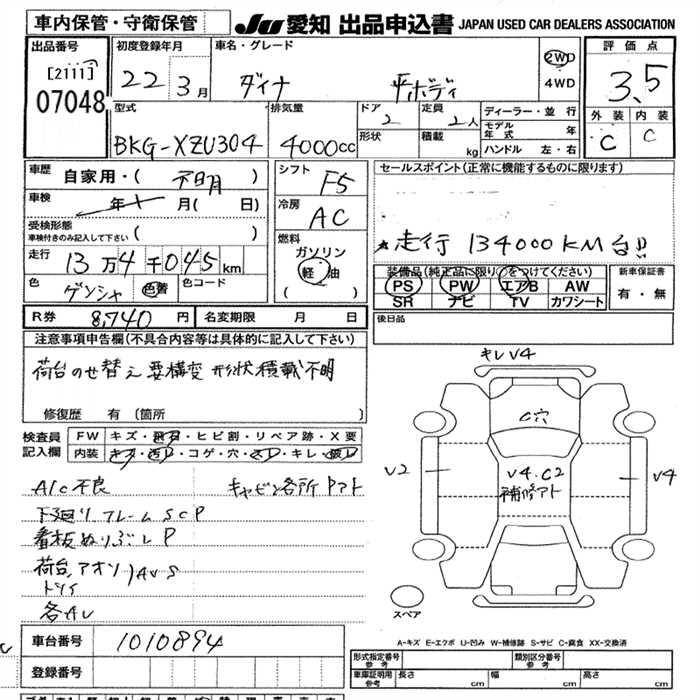 車内保管・守衛保管 JU 愛知 出品申込書 JAPAN USED CAR DEALERS ASSOCIATION
出品番号 初度登録年月 車名・グレード 評価点
[2111] 22年 3月 ダイナ 平ボディ 2WD 4WD 3.5
07048 外装 内装
型式 排気量 ドア 定員 ディーラー・並行 C C
BKG-XZU304 4000cc 2 2人 モデル年式 年
形状 積載 kg ハンドル 左・右
車歴 自家用・( 不明 ) シフト F5 セールスポイント(正常に機能するものに限ります)
車検 年 月( 日) 冷房 AC
受検形態 車検付きのみ記入して下さい ( ) ★走行134000KM台!!
燃料 ガソリン 軽油 ( )
走行 13万4千045km 装備品(純正品に限り○をつけてください) 新車保証書
色 ゲンシャ 色替 色コード PS PW エアB AW 有・無
SR ナビ TV カワシート
R券 8,740円 名変期限 月 日 後日品
注意事項申告欄(不具合内容等は具体的に記入して下さい)
荷台のせ替え要構変 形状積載不明
修復歴 有 (箇所 )
キレV4
C穴
検査員記入欄 FW キズ・飛石・ヒビ割・リペア跡・X要
内装 キズ・汚レ・コゲ・穴・スレ・キレ・破レ
V2 V4.C2 補修アト V4
A/C不良 キャビン各所Pアト
下廻りフレームSCP
看板ぬりつぶしP
荷台,アオリ
AUS
各AU
スペア
A-キズ E-エクボ U-凹み W-補修跡 S-サビ C-腐食 XX-交換済
車台番号 1010894
登録番号
形式指定番号 参考 類別区分番号 参考
車庫証明用 参考 長さ cm 幅 cm 高さ cm